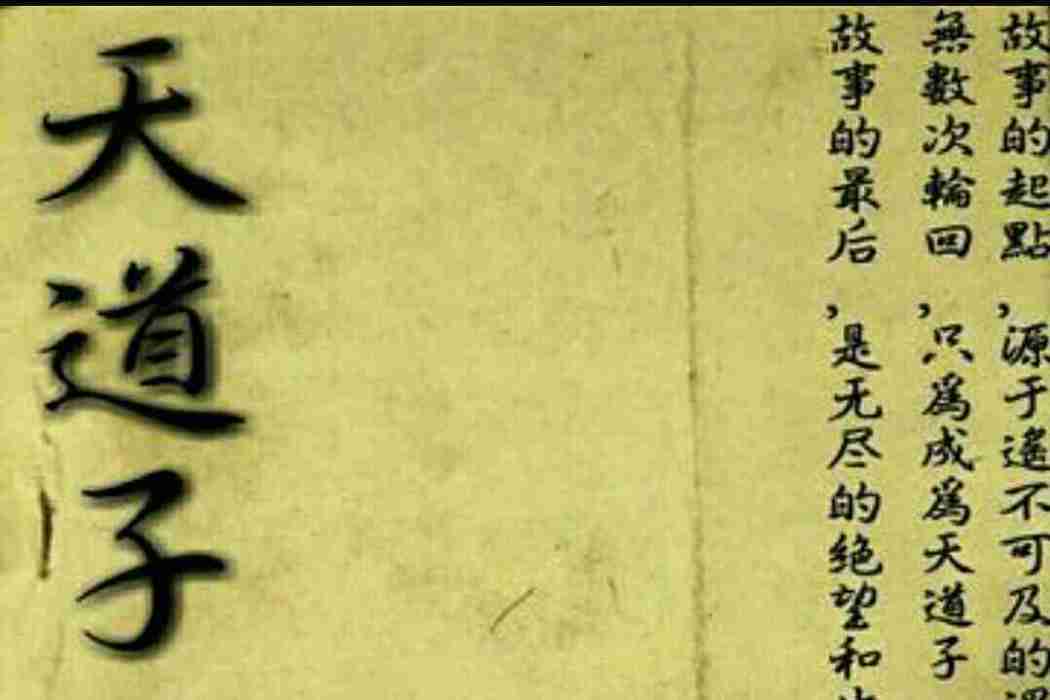 故事的起點,源于遙不可及的
無數次輪回,只爲成爲天道子
故事的最后,是无尽的绝望和
天道子